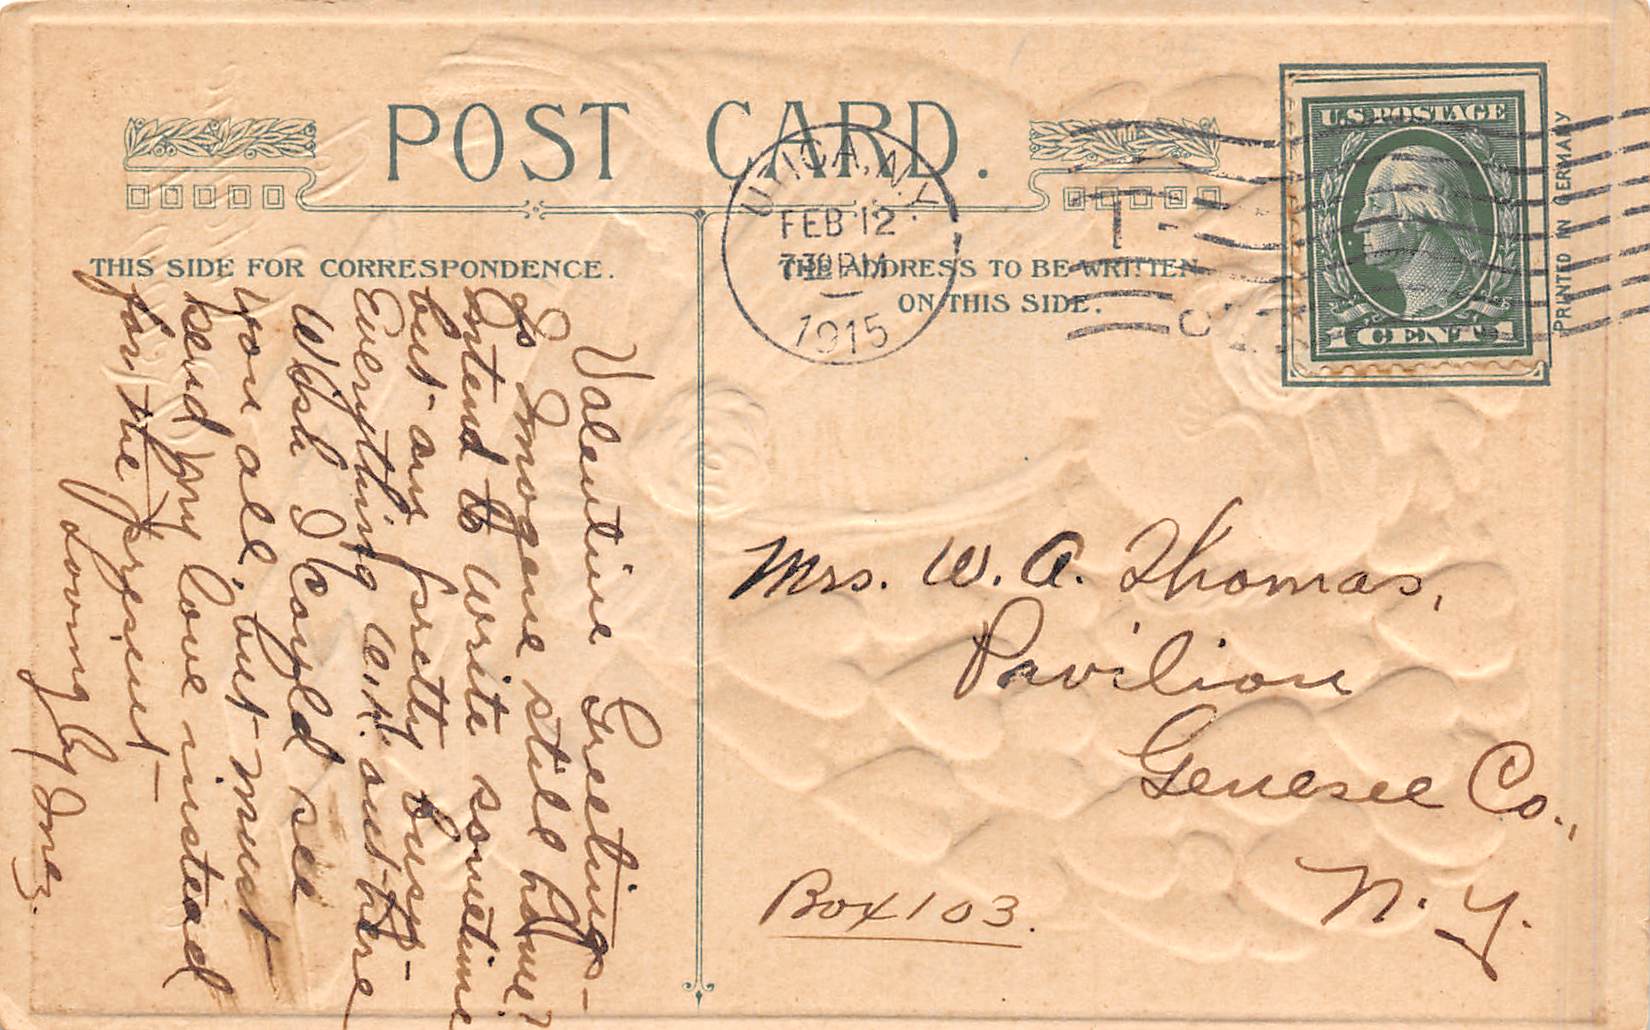 POST CARD.
UTICA, N.Y.
FEB 12
7:30 PM
1915
U.S. POSTAGE
1 CENT 1
PRINTED IN GERMANY
THIS SIDE FOR CORRESPONDENCE.
THE ADDRESS TO BE WRITTEN
ON THIS SIDE.
Valentine Greetings—
Is Imogene still home?
Intend to write sometime
but am pretty busy—
Everything O.K. out there
Wish I could see
you all, but must
send my love instead
for the present—
Lovingly Inez.
Mrs. W. A. Thomas,
Pavilion
Genesee Co.,
N. Y.
Box 103.